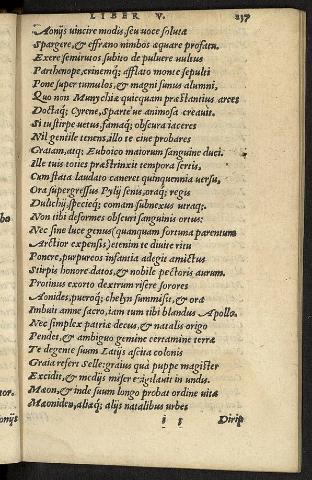 LIBER V. 237
Aonijs vincire modis, seu voce soluta
Spargere, & effræno nimbos æquare profatu.
Exere semirutos subito de puluere vultus
Parthenope, crinemq; afflato monte sepulti
Pone super tumulos, & magni funus alumni,
Quo non Munychiæ quicquam præstantius arces
Doctaq; Cyrene, Sparteue animosa creauit.
Si tu stirpe vetus, famaq; obscura iaceres
Nil gentile tenens, illo te ciue probares
Graiam, atq; Euboico maiorum sanguine duci.
Ille tuis toties præstrinxit tempora sertis,
Cum stata laudato caneret quinquennia versu,
Ora supergressus Pylij senis, oraq; regis
Dulichij, specieq; comam subnexus utraq;.
Non tibi deformes obscuri sanguinis ortus:
Nec sine luce genus (quanquam fortuna parentum
Arctior expensis) etenim te diuite ritu
Ponere, purpureos infantia adegit amictus
Stirpis honore datos, & nobile pectoris aurum.
Protinus exorto dextrum risere sorores
Aonides, pueroq; chelyn summisit, & ora
Imbuit amne sacro, iam tum tibi blandus Apollo.
Nec simplex patriæ decus, & natalis origo
Pendet, & ambiguo gemine certamine terræ
Te de gente suum Latijs ascita colonis
Graia refert Selle: graius qua puppe magister
Excidit, & medijs miser euigilauit in undis.
Mæon, & inde suum longo probat ordine vita
Mæoniden, aliæq; alijs natalibus urbes
i 5 Dirip